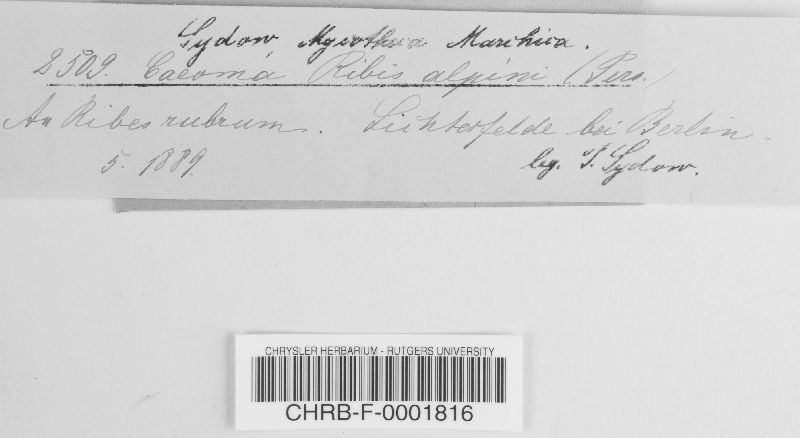 Sydow, Mycotheca Marchica.
2509. Caeoma Ribis alpini (Pers.)
An Ribes rubrum. Lichterfelde bei Berlin.
5. 1889. leg. P. Sydow.
CHRYSLER HERBARIUM - RUTGERS UNIVERSITY
CHRB-F-0001816